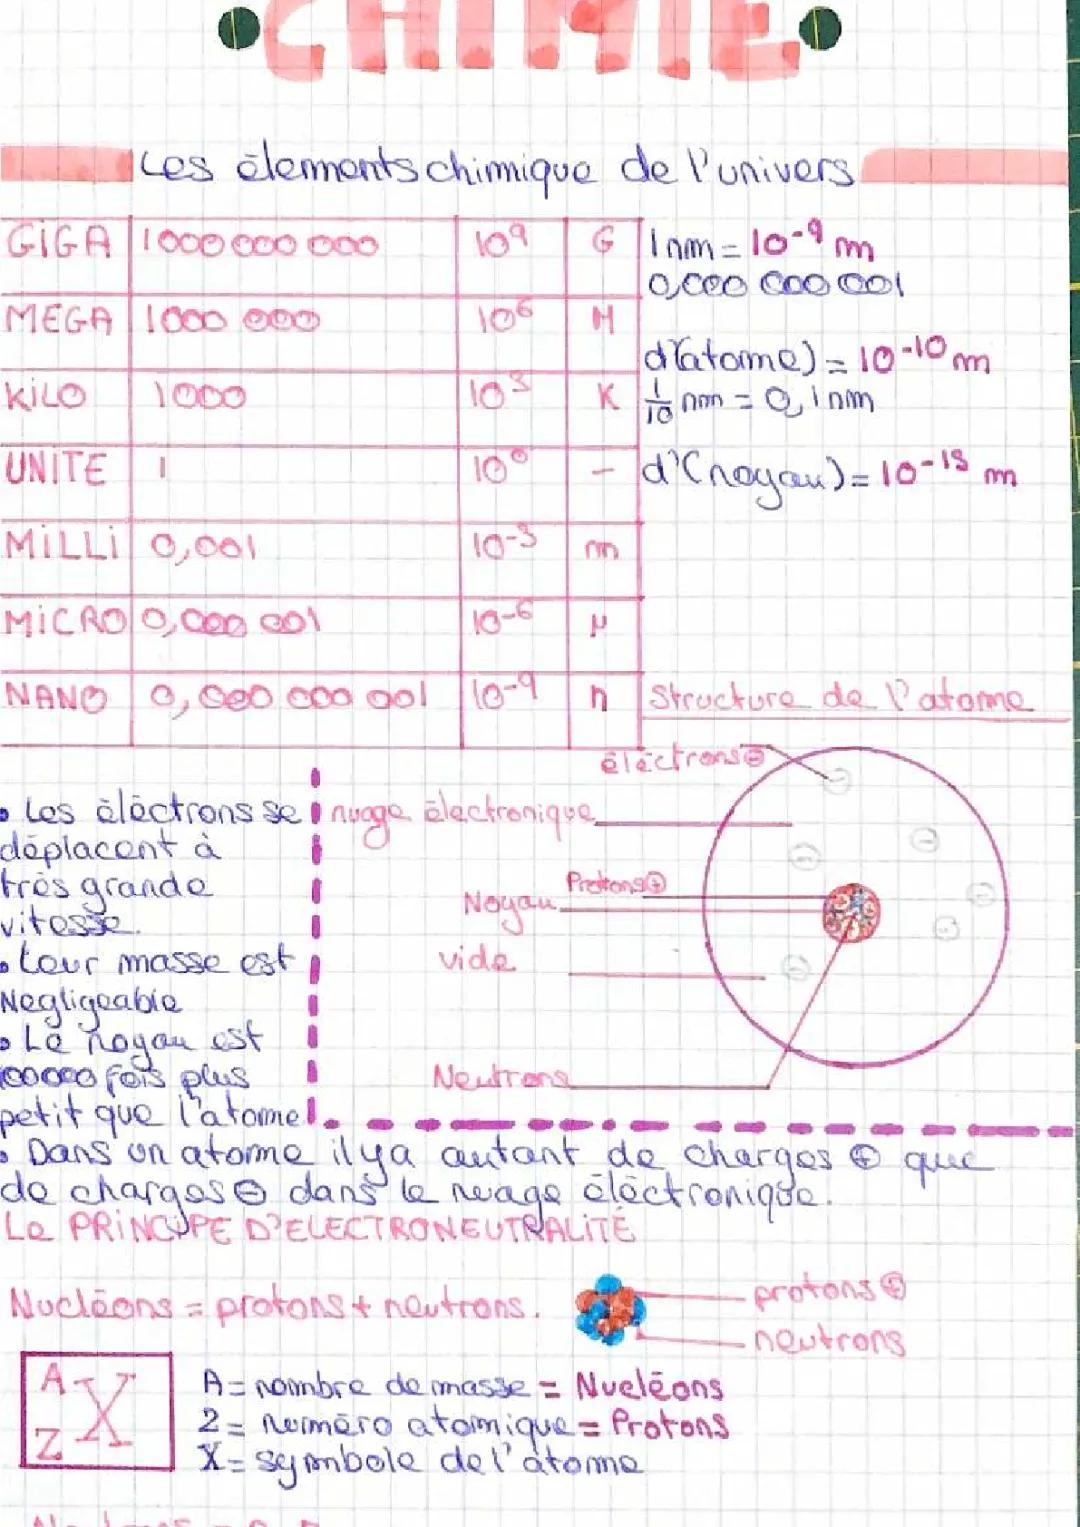 CHIMIE
Les élements chimique de l'univers
GIGA 1000 000 000 10⁹ G
MEGA 1000 000 10⁶ M
KILO 1000 10³ K
UNITE 1 10⁰ -
MILLI 0,001 10-³ m
MICRO 0,000 001 10-⁶ µ
NANO 0,000 000 001 10-⁹ n
1 nm = 10-⁹ m
0,000 000 001
d(atome) = 10-¹⁰ m
1/10 nm = 0,1 nm
d'(noyau) = 10-¹⁵ m
Structure de l'atome
éléctrons ⊖
nuage électronique
Protons ⊕
Noyau
vide
Neutrons
• Les éléctrons se
déplacent à
très grande
vitesse.
• Leur masse est
Negligeable
• Le noyau est
100000 fois plus
petit que l'atome
• Dans un atome il y a autant de charges ⊕ que
de charges ⊖ dans le nuage éléctronique.
Le PRINCIPE D'ELECTRONEUTRALITÉ
Nucléons = protons + neutrons.
protons ⊕
neutrons
A
X
Z
A = nombre de masse = Nucléons
Z = numéro atomique = Protons
X = symbole de l'atome